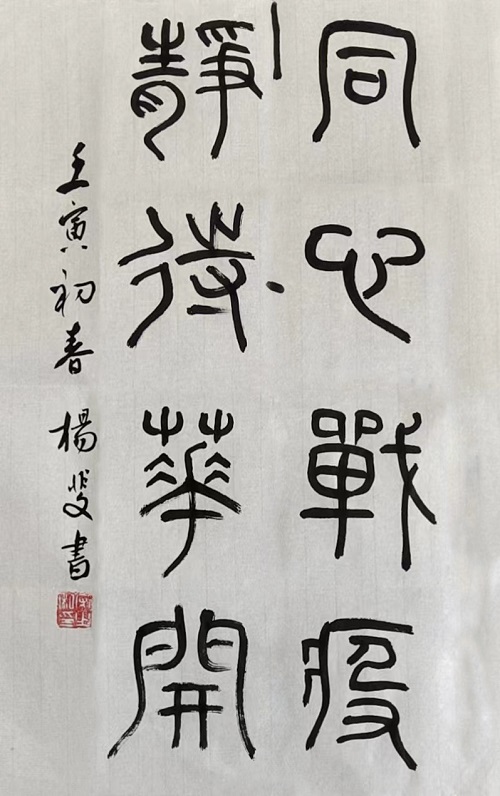 同心戰疫
靜待華開
壬寅初春 楊斐書